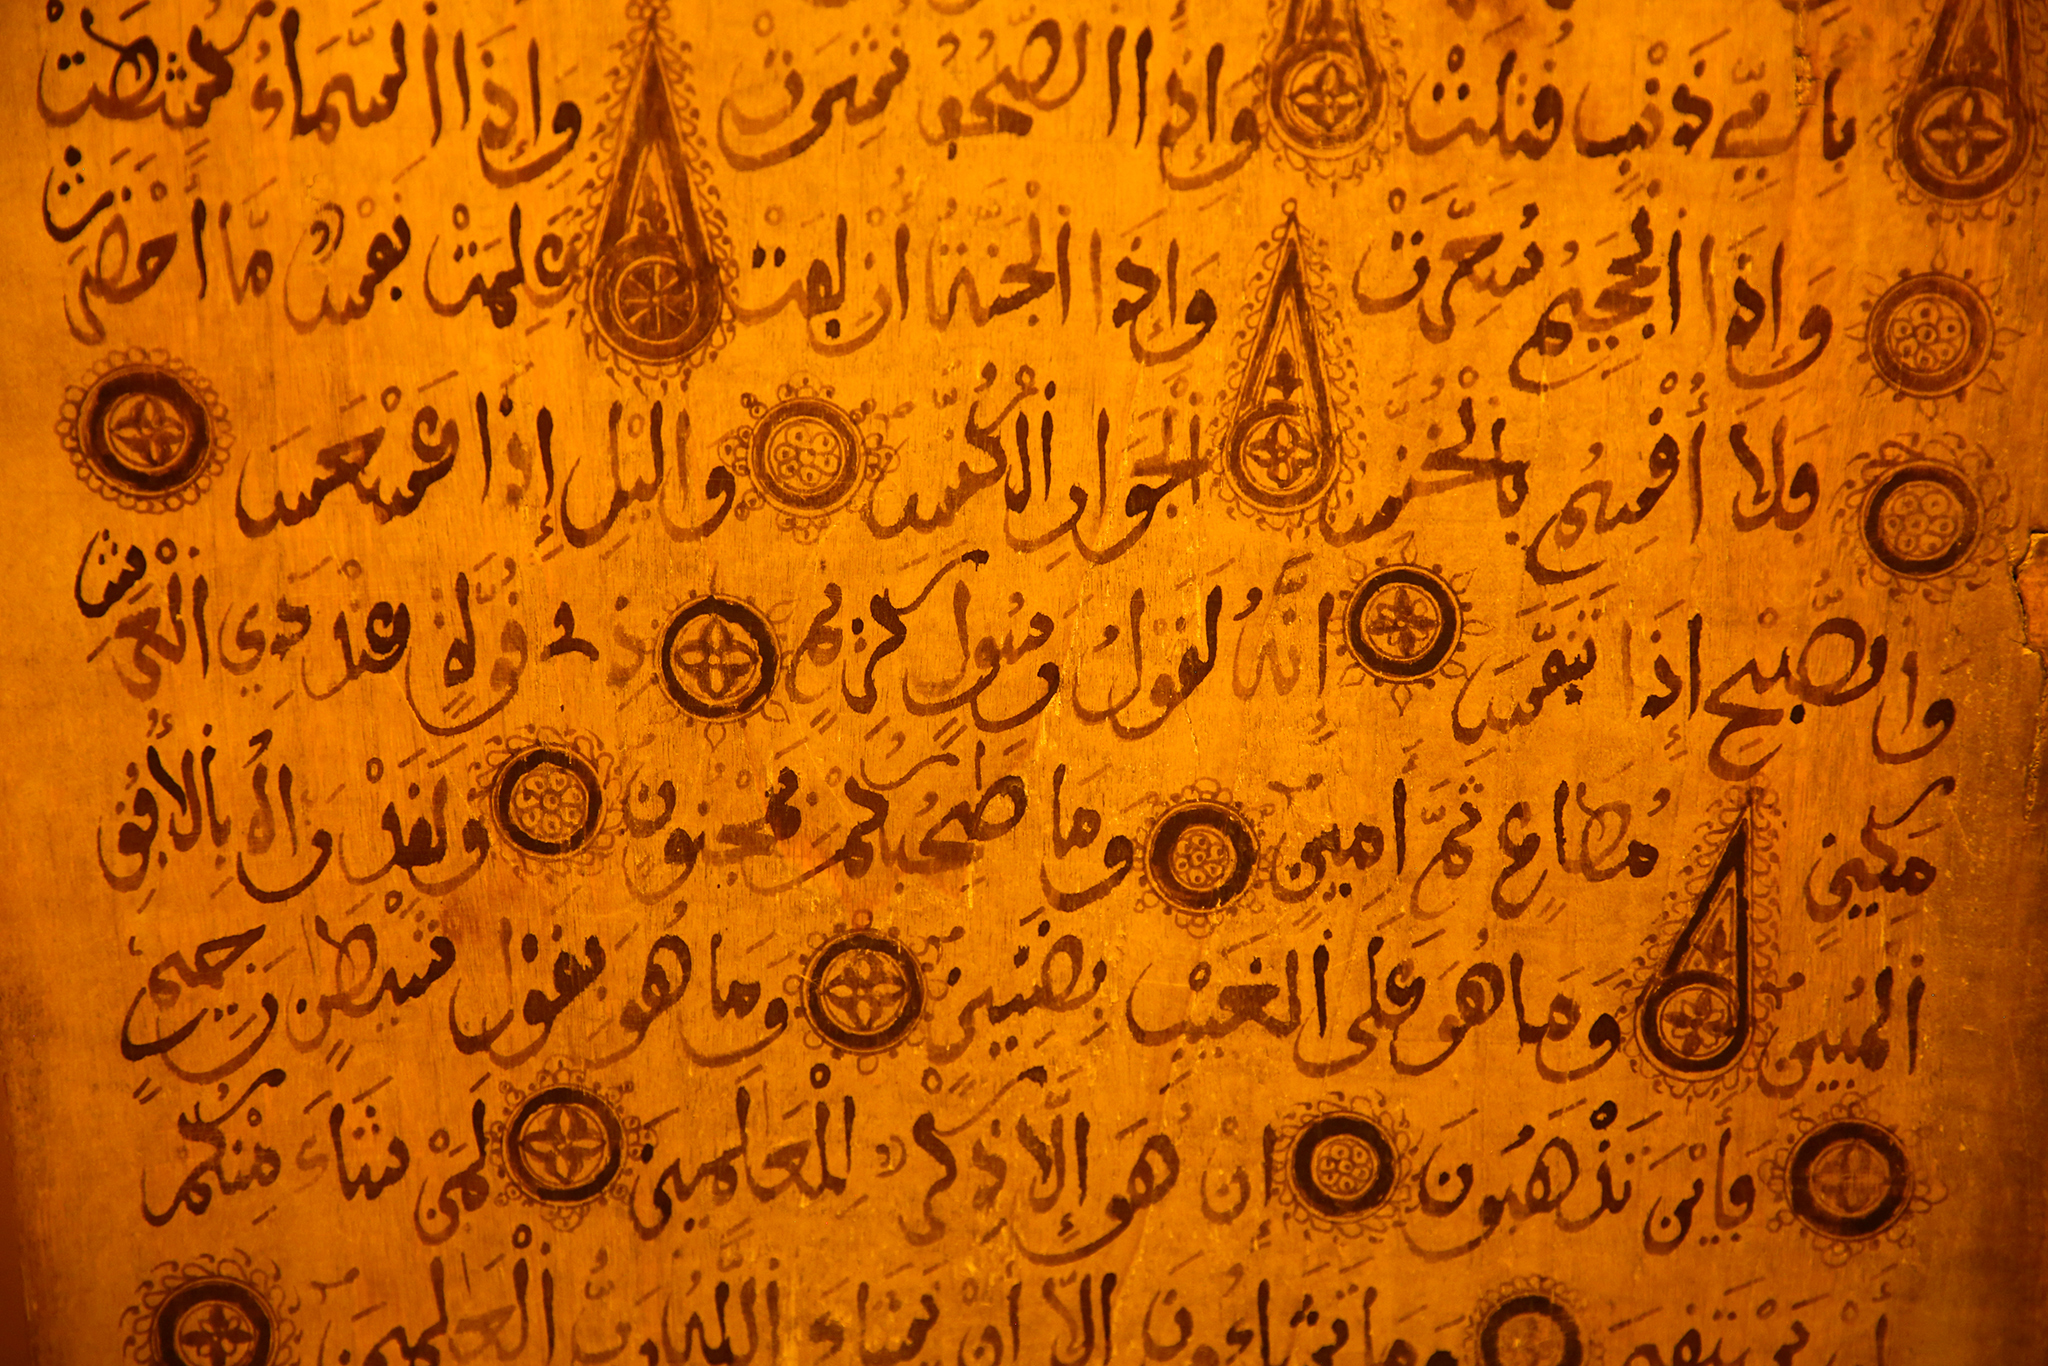 بِأَيِّ ذَنْبٍ قُتِلَتْ وَإِذَا الصُّحُفُ نُشِرَتْ وَإِذَا السَّمَاءُ كُشِطَتْ
وَإِذَا الْجَحِيمُ سُعِّرَتْ وَإِذَا الْجَنَّةُ أُزْلِفَتْ عَلِمَتْ نَفْسٌ مَّا أَحْضَرَتْ
فَلَا أُقْسِمُ بِالْخُنَّسِ الْجَوَارِ الْكُنَّسِ وَاليْلِ إِذَا عَسْعَسَ
وَالصُّبْحِ إِذَا تَنَفَّسَ إِنَّهُ لَقَوْلُ رَسُولٍ كَرِيمٍ ذِي قُوَّةٍ عِندَ ذِي الْعَرْشِ
مَكِينٍ مُطَاعٍ ثَمَّ أَمِينٍ وَمَا صَٰحِبُكُمْ بِمَجْنُونٍ وَلَقَدْ رَءَاهُ بِالْأُفُقِ
الْمُبِينِ وَمَا هُوَ عَلَى الْغَيْبِ بِضَنِينٍ وَمَا هُوَ بِقَوْلِ شَيْطَٰنٍ رَجِيمٍ
فَأَيْنَ تَذْهَبُونَ إِنْ هُوَ إِلَّا ذِكْرٌ لِلْعَٰلَمِينَ لِمَنْ شَاءَ مِنْكُمْ
أَنْ يَسْتَقِيمَ وَمَا تَشَاءُونَ إِلَّا أَنْ يَشَاءَ اللَّهُ رَبُّ الْعَٰلَمِينَ